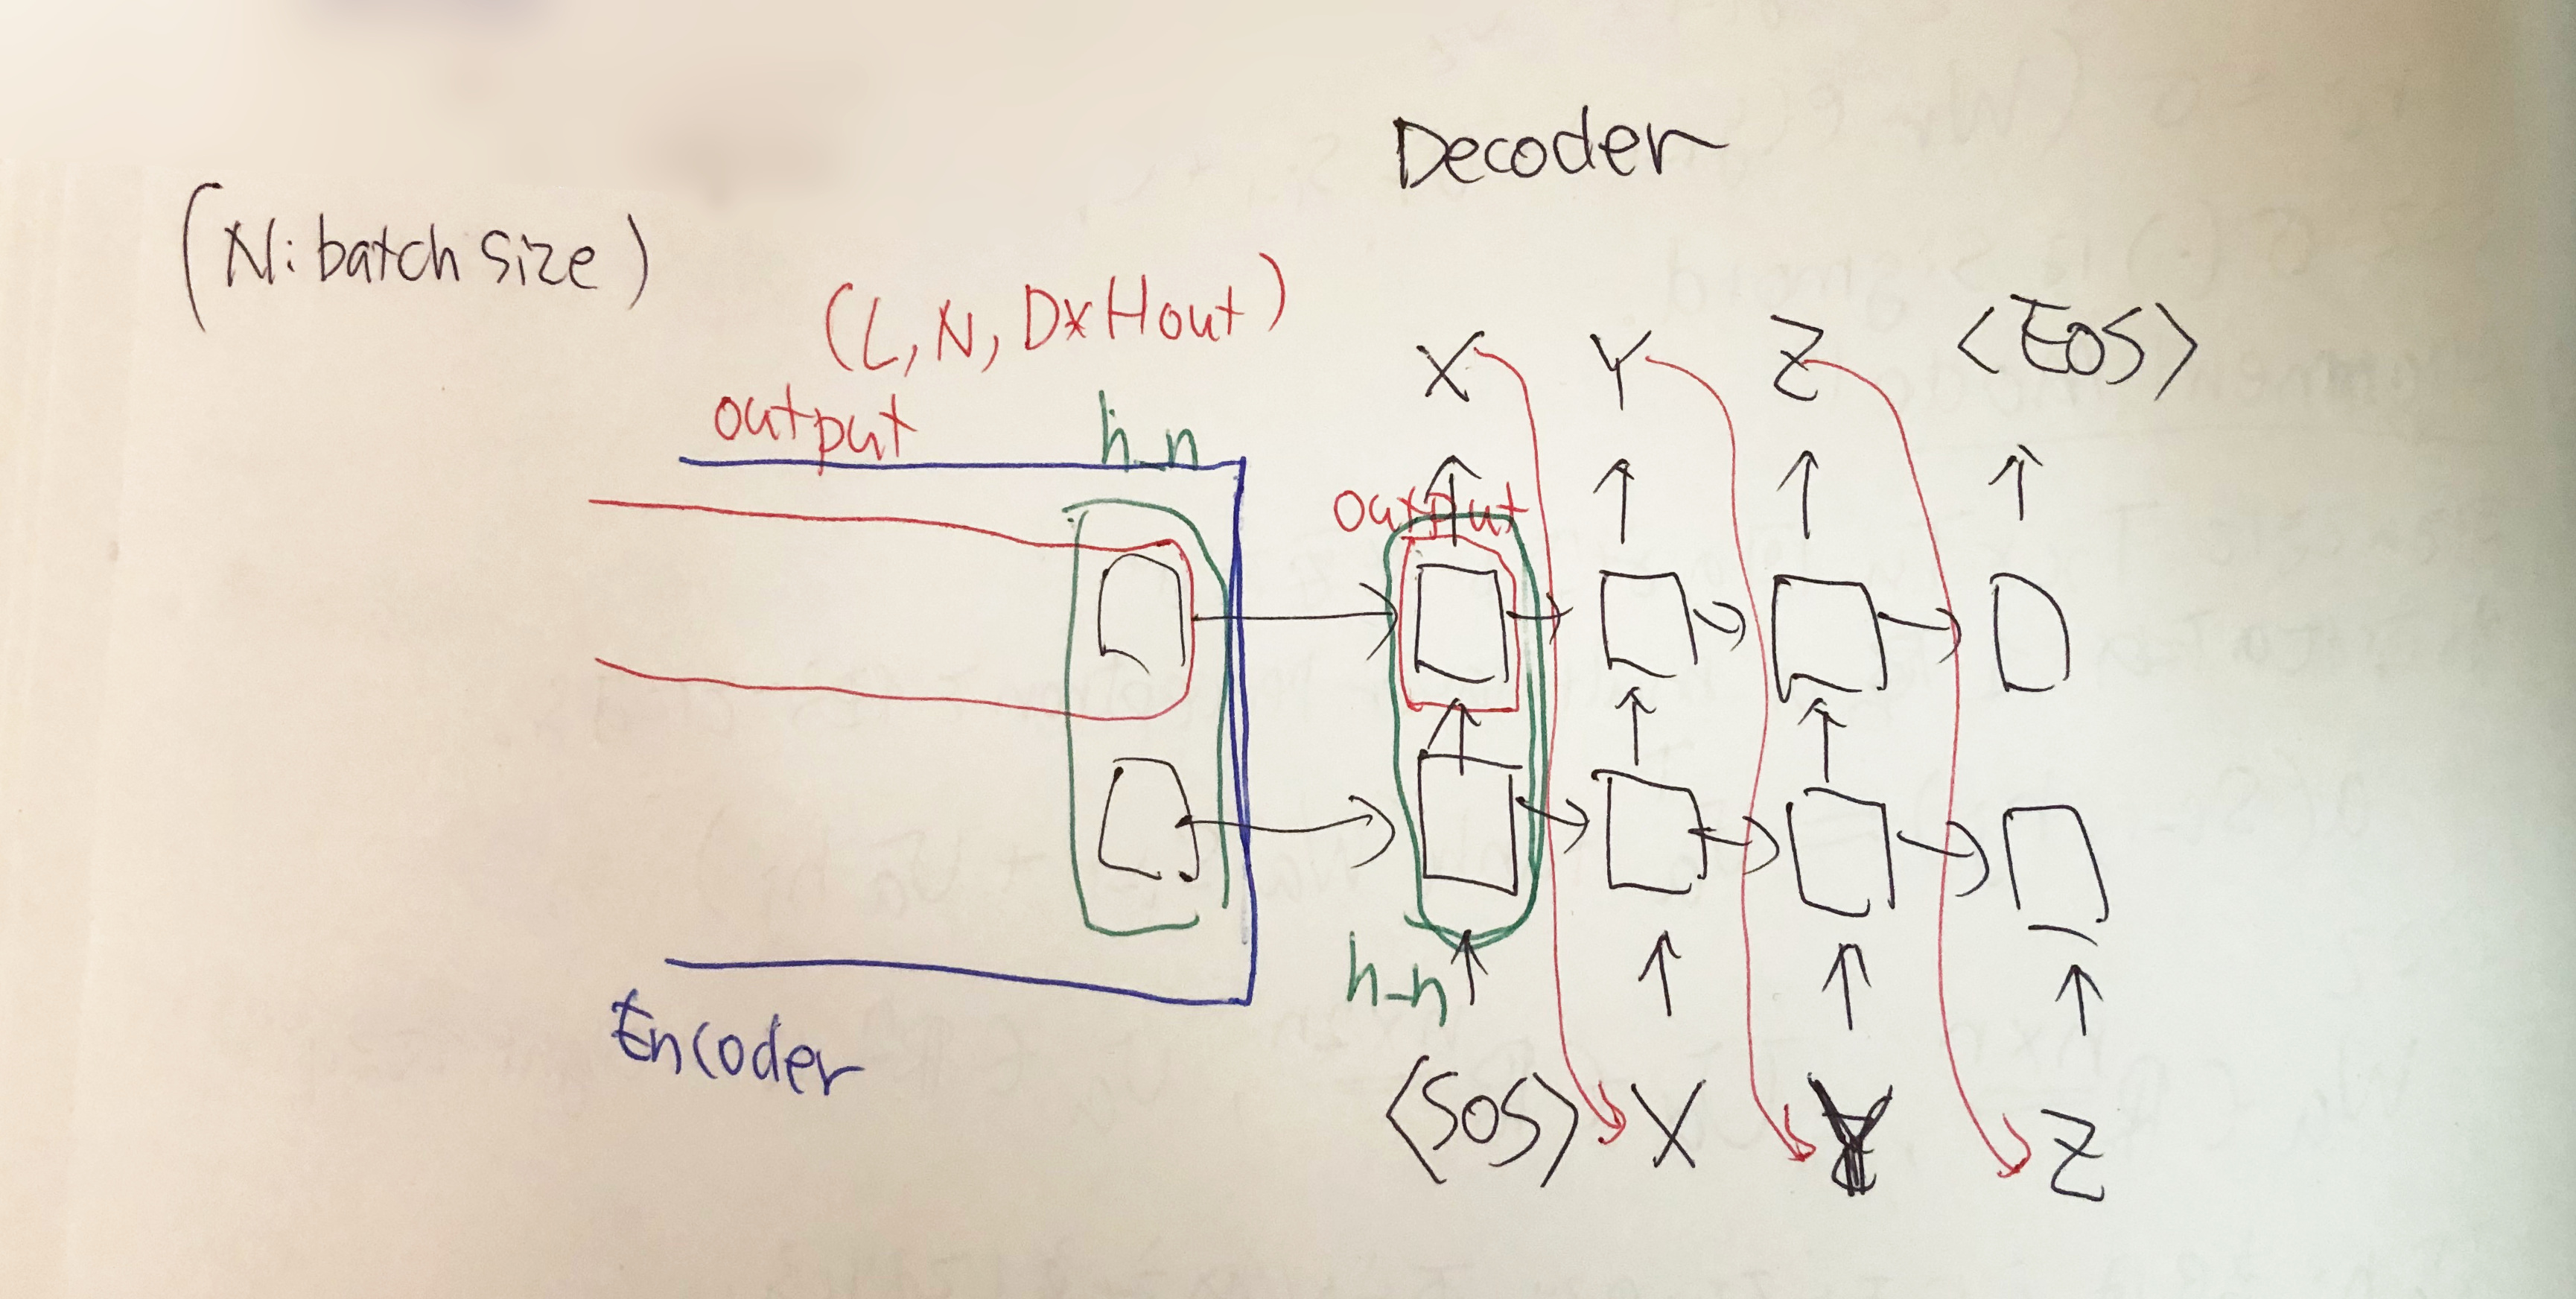 Decoder
(N: batch size)
(L, N, D*Hout)
output
h_n
X Y Z <EOS>
output
h_n
Encoder
<SOS> X Y Z